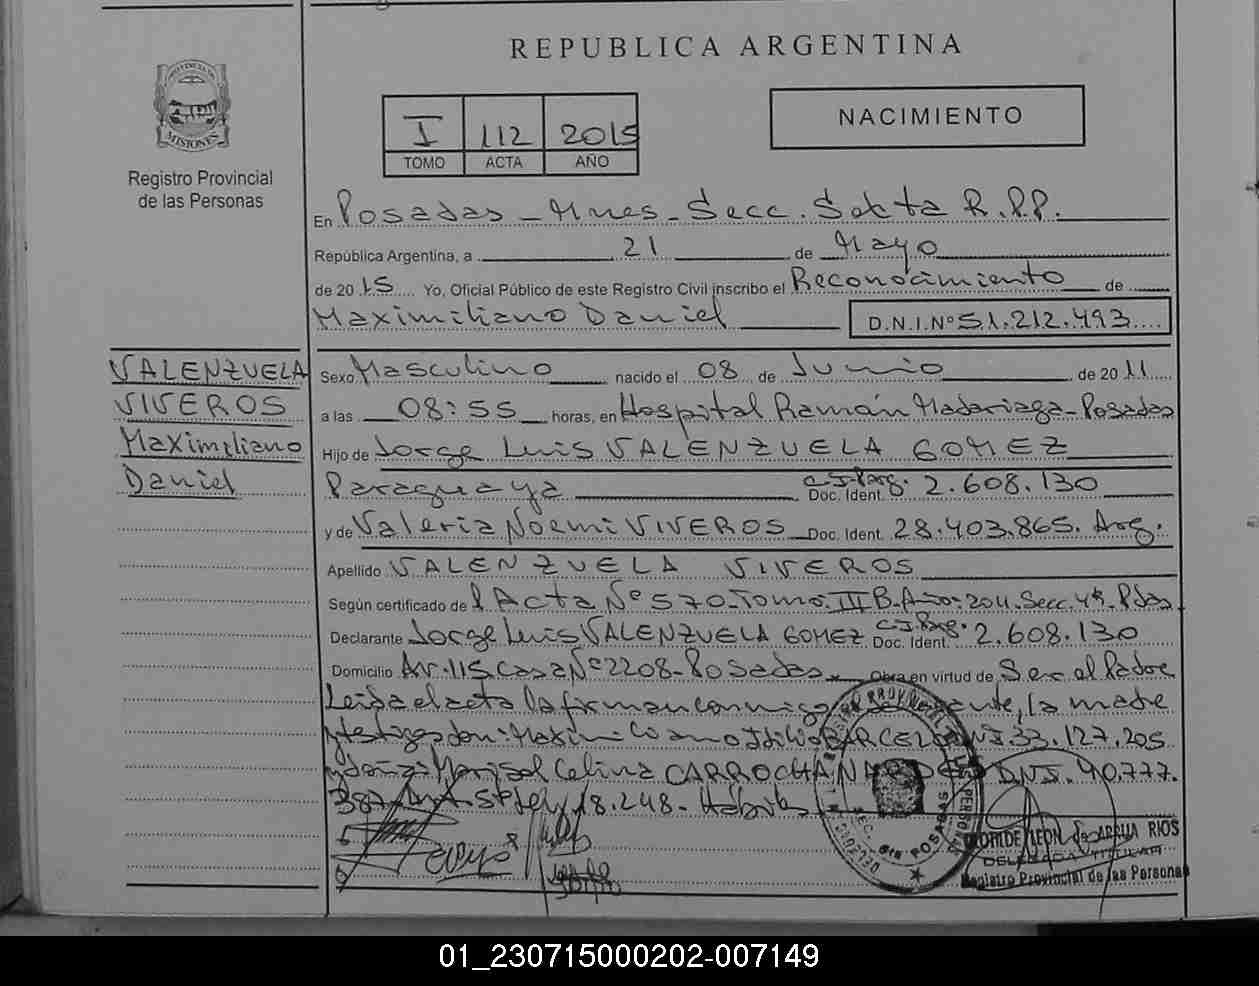 REPUBLICA ARGENTINA
PROVINCIA DE
MISIONES
Registro Provincial
de las Personas
I 112 2015
TOMO ACTA AÑO
NACIMIENTO
En Posadas - Mnes - Secc. Sexta R.P.P.
República Argentina, a 21 de Mayo
de 2015 Yo, Oficial Público de este Registro Civil inscribo el Reconocimiento de
Maximiliano Daniel D.N.I.Nº 51.212.493
VALENZUELA
VIVEROS
Maximiliano
Daniel
Sexo Masculino nacido el 08 de Junio de 2011
a las 08:55 horas, en Hospital Ramón Madariaga - Posadas
Hijo de Jorge Luis VALENZUELA GOMEZ
Paraguaya C.I. Parg. Doc. Ident. 2.608.130
y de Valeria Noemi VIVEROS Doc. Ident. 28.403.865. Arg.
Apellido VALENZUELA VIVEROS
Según certificado de l Acta Nº 570 - Tomo III B. Año: 2011. Secc. 4ª. Pdas
Declarante Jorge Luis VALENZUELA GOMEZ C.I. Parg. Doc. Ident. 2.608.130
Domicilio Av. 115 Casa Nº 2208 - Posadas Obra en virtud de Ser el Padre
Leida el acta la firman conmigo, la madre
y testigos don: 33.127.205
y doña: Marisol Celina CARROCHA D.N.I. 40.777.
387 Ley 18.248.
REGISTRO PROVINCIAL DE LAS PERSONAS
SEC. 6ta POSADAS
LEON de ARRUA RIOS
DELEGADA TITULAR
Registro Provincial de las Personas
01_230715000202-007149